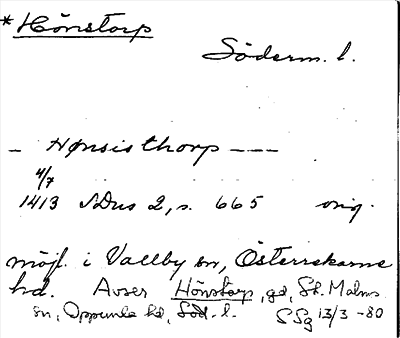 *Hönstorp
Söderm. l.
– Hønsisthorp –––
4/7
1413 SDns 2, s. 665 orig.
möjl. i Vallby sn, Österrekarne
hd. Avser Hönstorp, gd, St. Malms
sn, Oppunda hd, Söd. l. SSg 13/3 -80